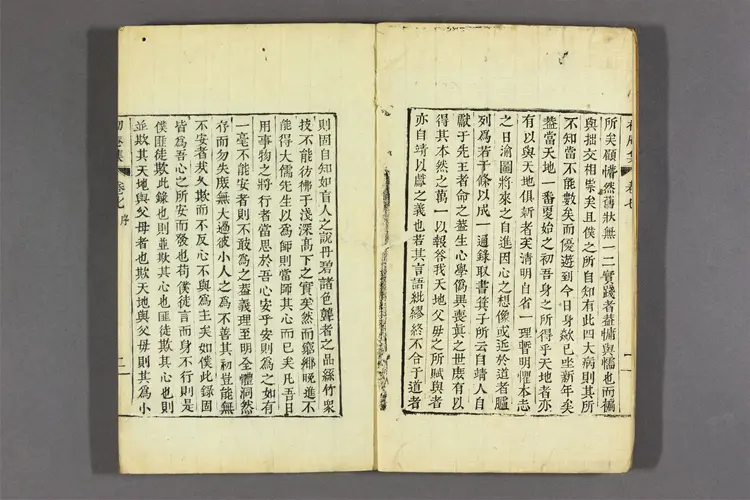 所矣顧懵然舊狀無一二實踐者蓋慵與懦也而褊
與拙交相崇矣且僕之所自知有此四大病則其所
不知當不能數矣而優遊到今日身歘已坐新年矣
蓋當天地一番更始之初吾身之所得乎天地者亦
有以與天地俱新者矣清明自省一理瞥明懼本志
之日渝圖將來之自進因心之想像或近於道者臚
列為若干條以成一通錄取書箕子所云自靖人自
獻于先王者命之蓋生心學僞異喪眞之世庶有以
得其本然之萬一以報答我天地父母之所賦與者
亦自靖以獻之義也若其言語紕繆終不合于道者
則固自知如盲人之說丹碧諸色聾者之品絲竹衆
技不能彷彿于淺深高下之實矣然而窮鄉晚進不
能得大儒先生以為師則當師其心而已矣凡吾日
用事物之將行者當思於吾心安乎安則為之如有
一毫不能安者則不敢為之蓋義理至明全體洞然
存而勿失庶無大過彼小人之為不善其初豈能無
不安者哉久欺而不反心不與為主矣如僕此錄固
皆為吾心之所安而發也苟僕徒言而身不行則是
僕匪徒欺此錄也則並欺其心也匪徒欺其心也則
並欺其天地與父母者也欺天地與父母則其為小
卷七
序
二